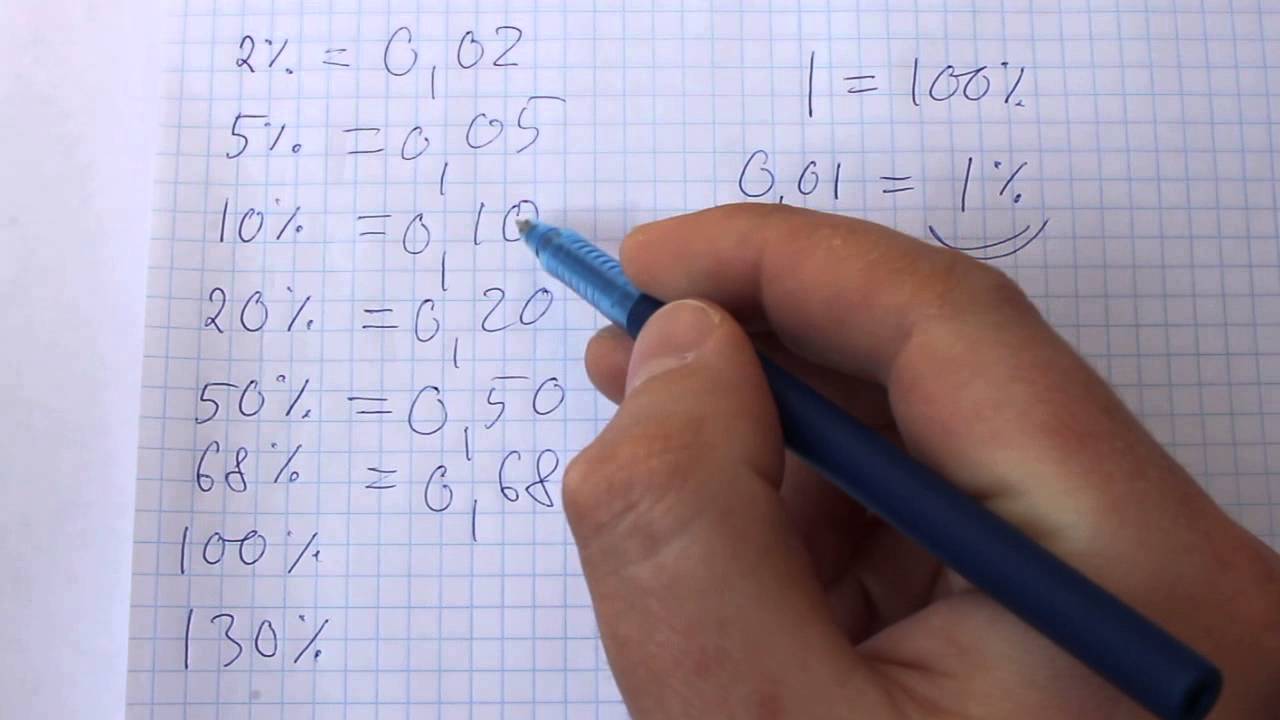 2% = 0,02
5% = 0,05
10% = 0,10
20% = 0,20
50% = 0,50
68% = 0,68
100%
130%
1 = 100%
0,01 = 1%